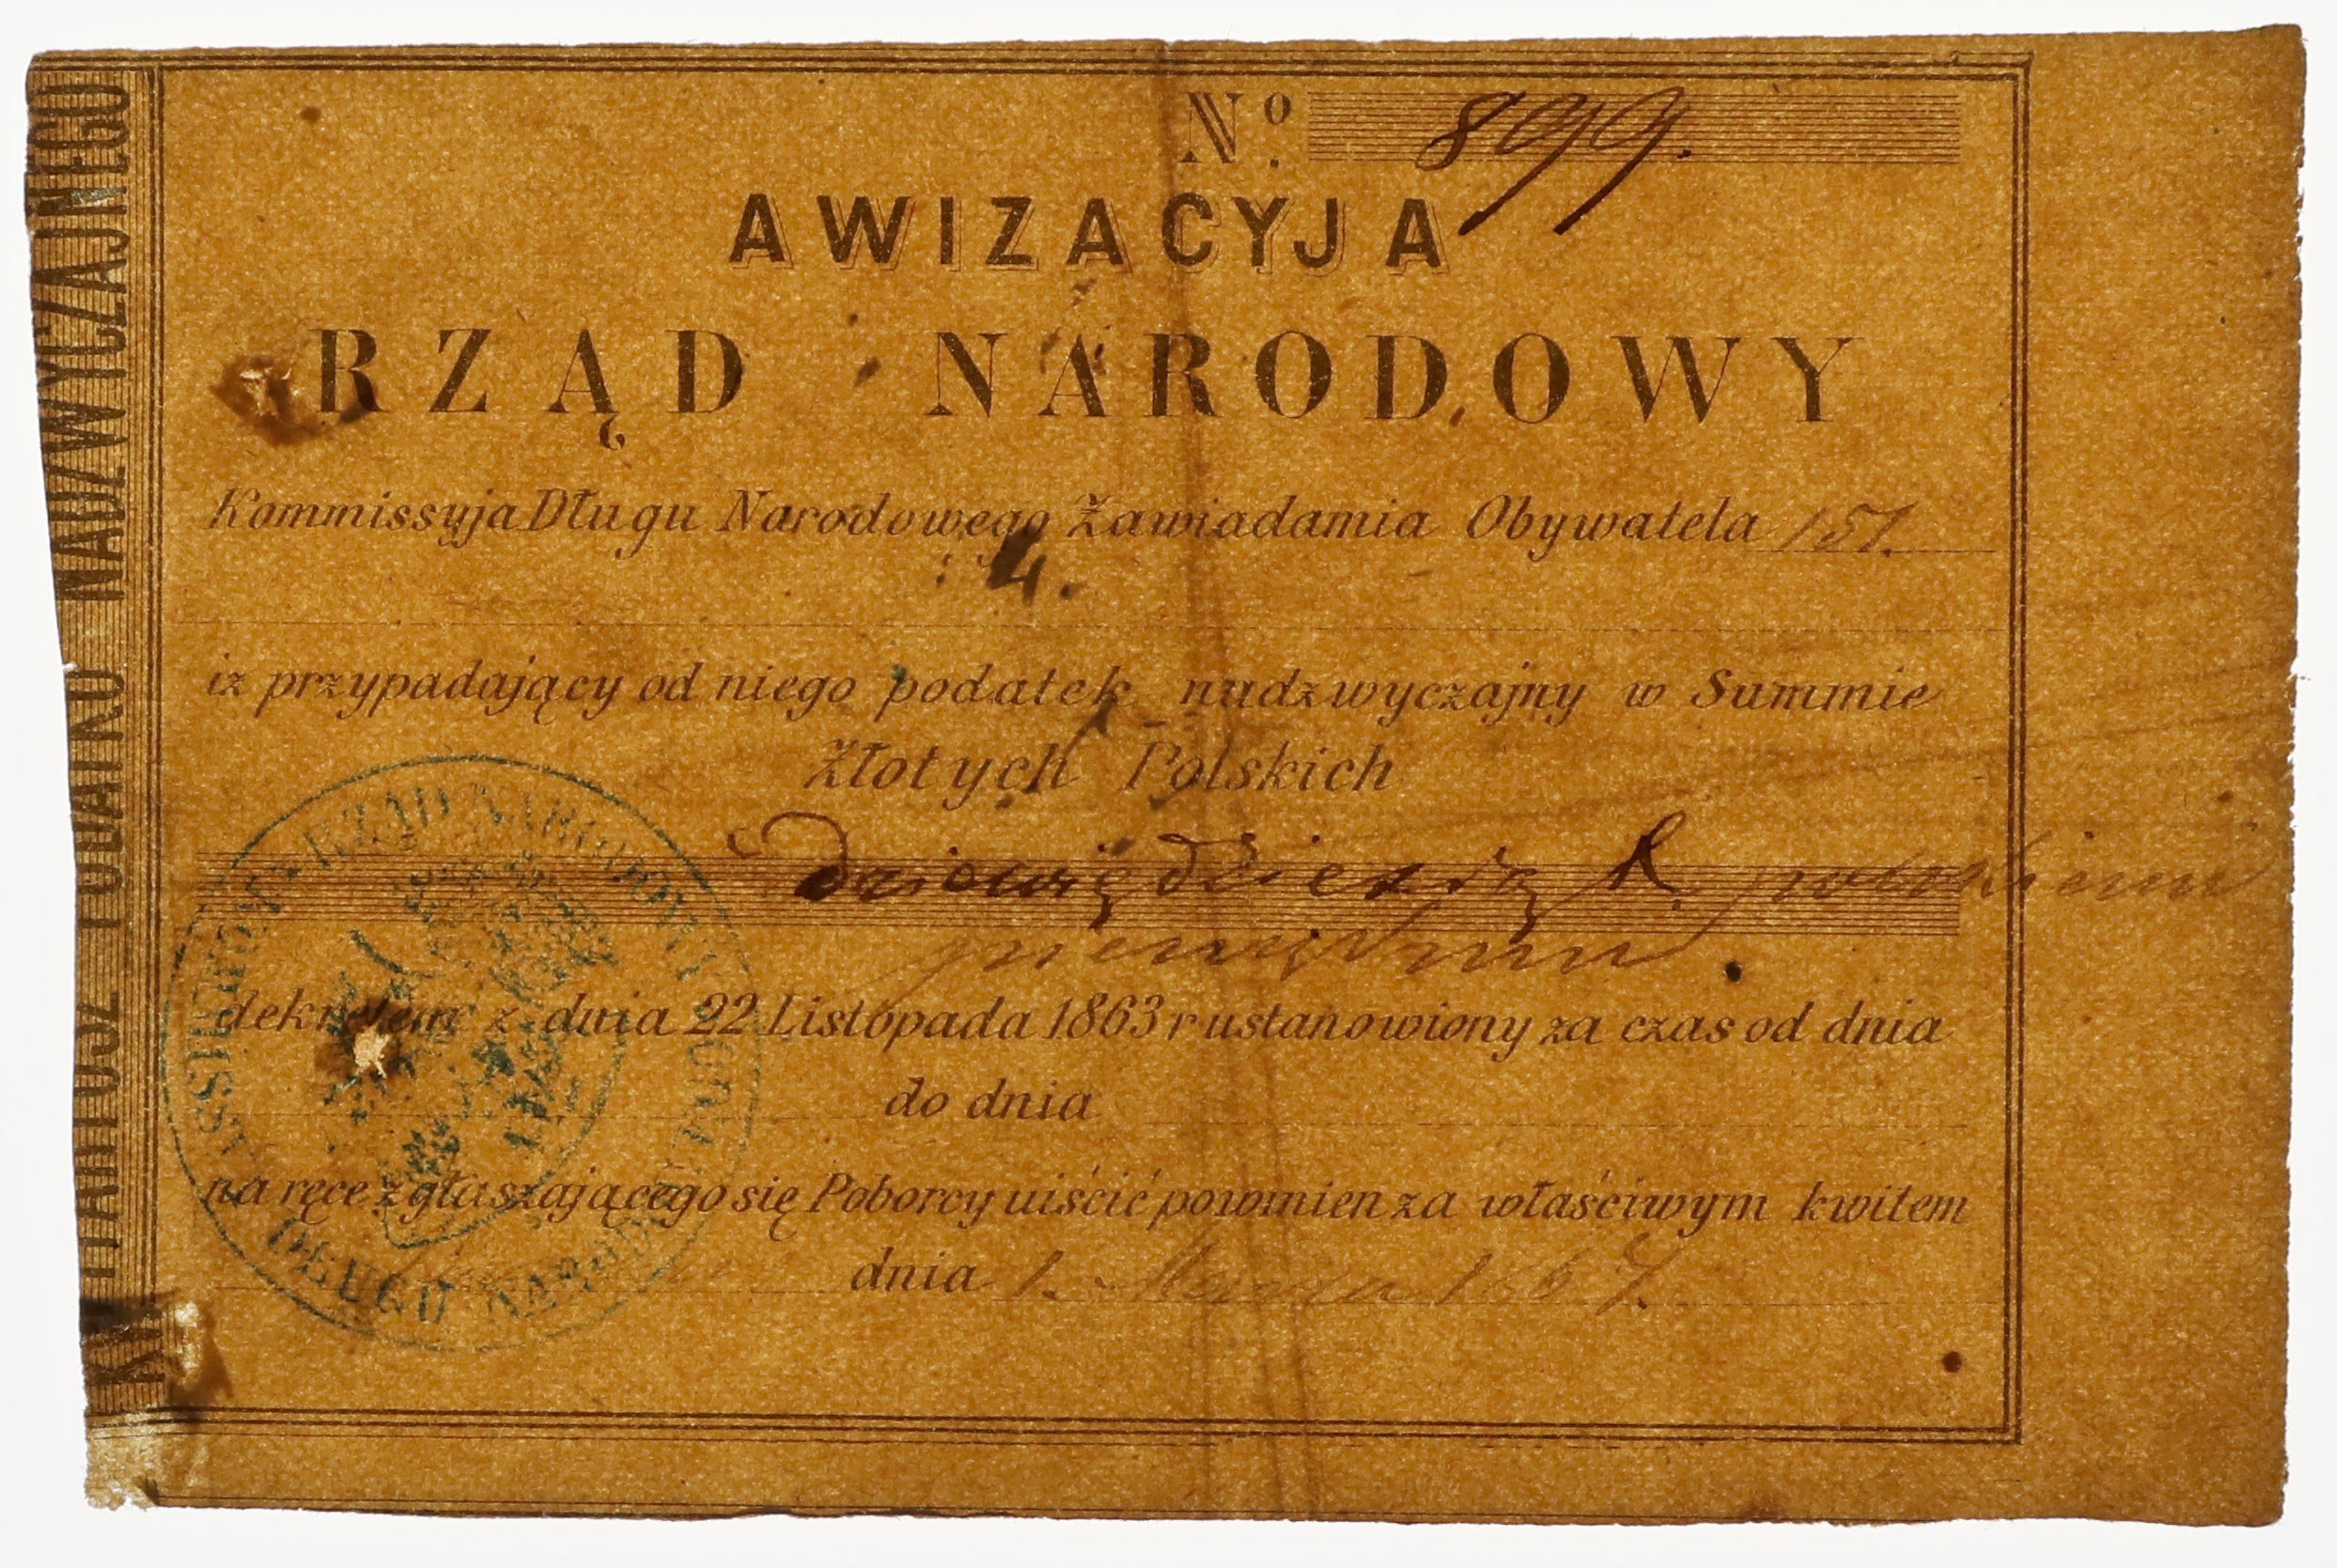 No. 899.
AWIZACYJA
RZĄD NARODOWY
Kommissyja Długu Narodowego Zawiadamia Obywatela 151.
4.
iz przypadający od niego podatek nadzwyczajny w Summie
Złotych Polskich
dziewiędziesią
dekretem z dnia 22 Listopada 1863 r ustanowiony za czas od dnia
do dnia
na ręce zgłaszającego się Poborcy uiścić powinien za właściwym kwitem
dnia 1. Marca 1864.
KWITARIUSZ PODATKU NADZWYCZAJNEGO
RZĄD NARODOWY
DŁUGU NARODOWEGO